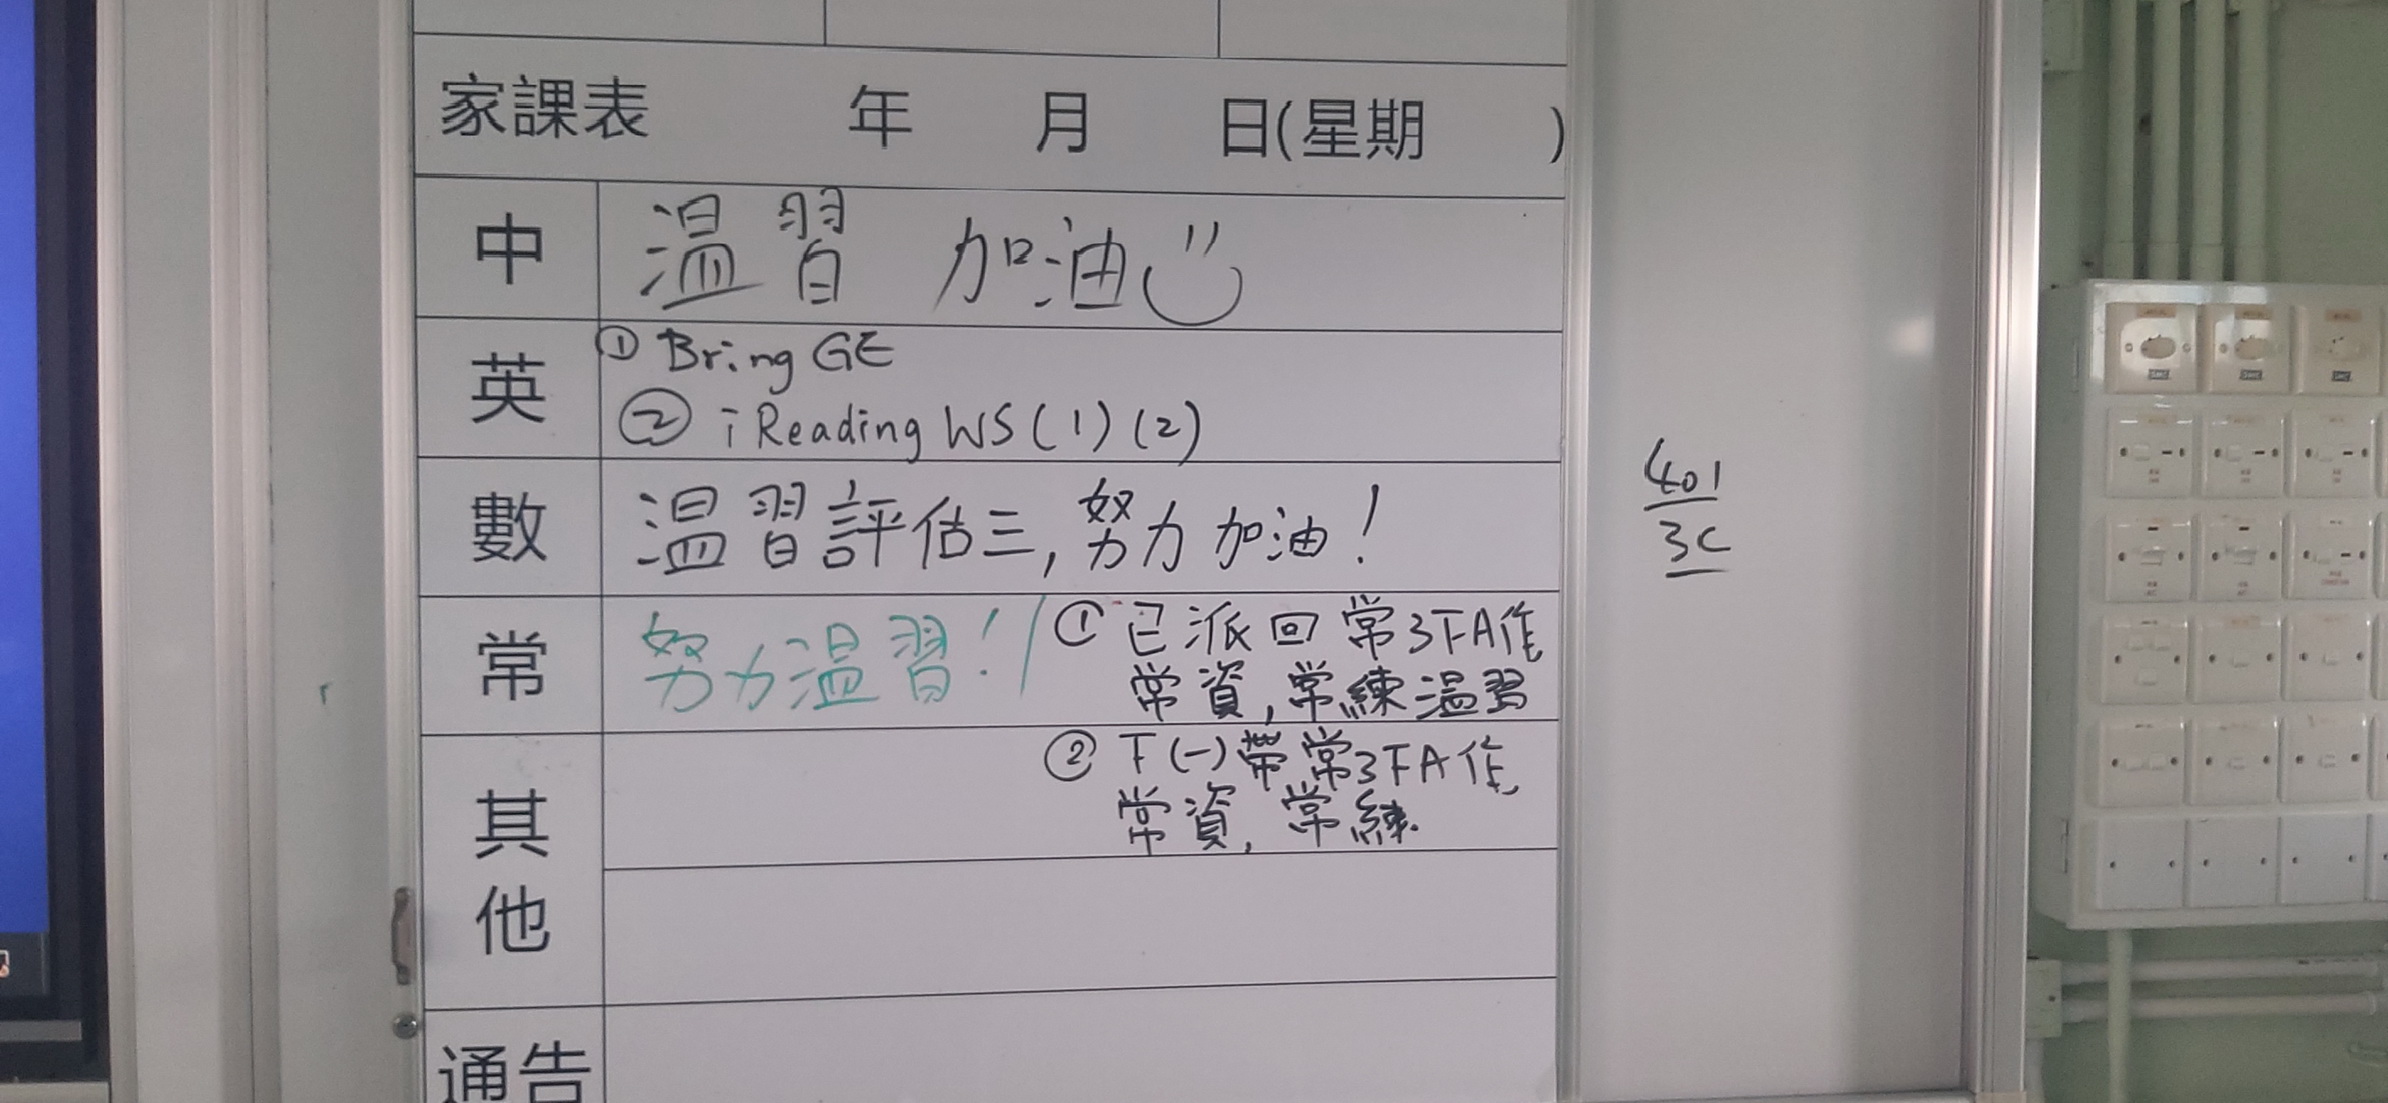 家課表 年 月 日(星期 )
中 溫習 加油
英 ① Bring GE
② iReading WS (1) (2)
數 溫習評估三, 努力加油!
常 努力溫習! ① 已派回常3下A作
常資, 常練溫習
其他 ② 下(一)帶常3下A作,
常資, 常練.
通告
401
3C